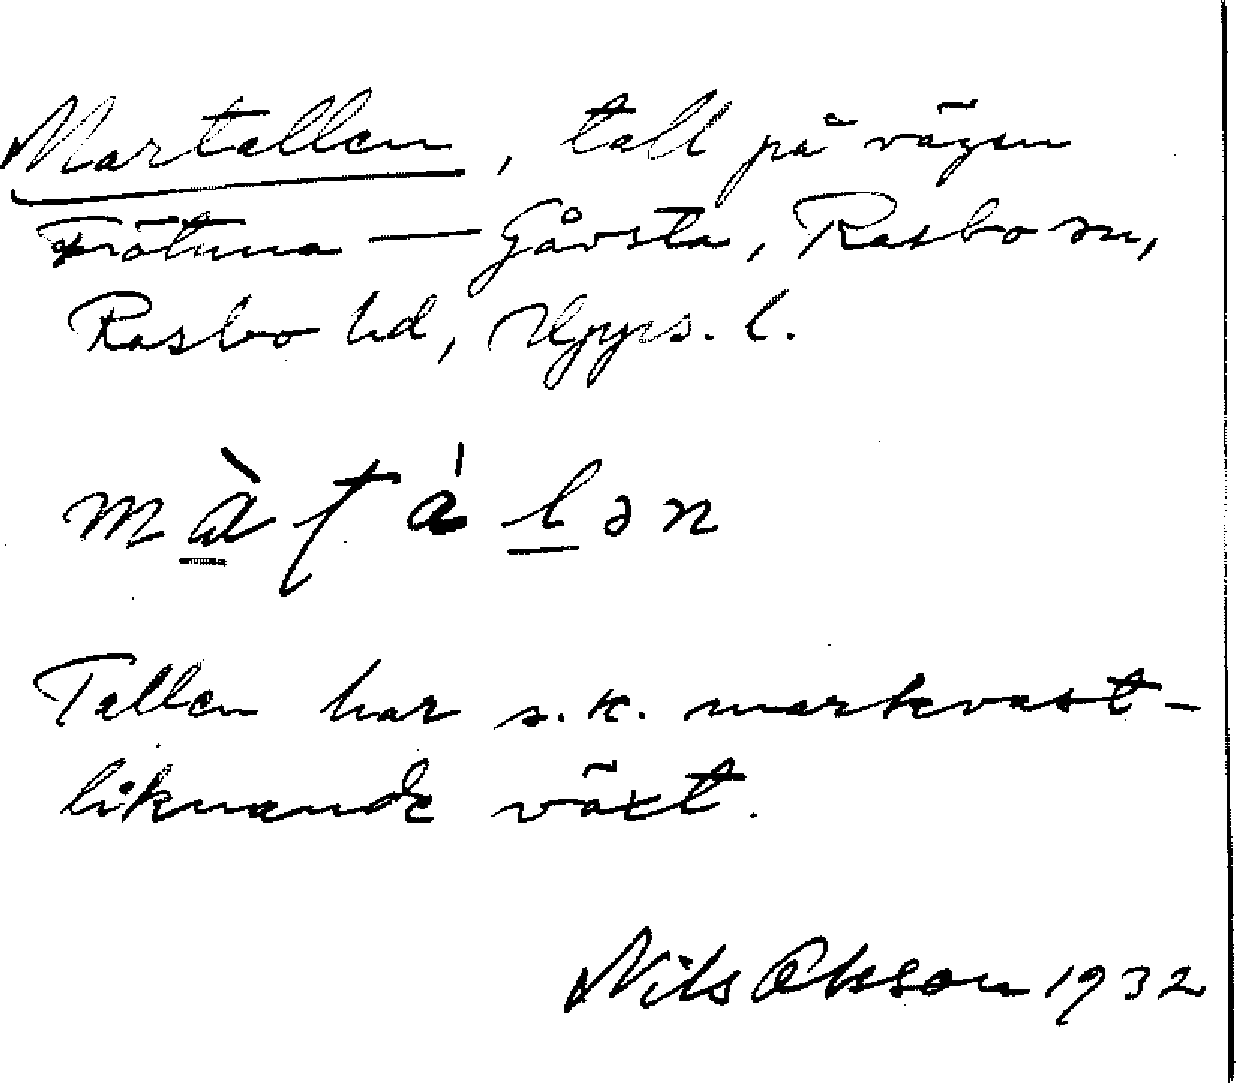 Martallen, tall på vägen
Frötuna — Gåvsta, Rasbo sn,
Rasbo hd, Upps. l.
Tallen har s.k. markvast-
liknande växt.
Nils 1932